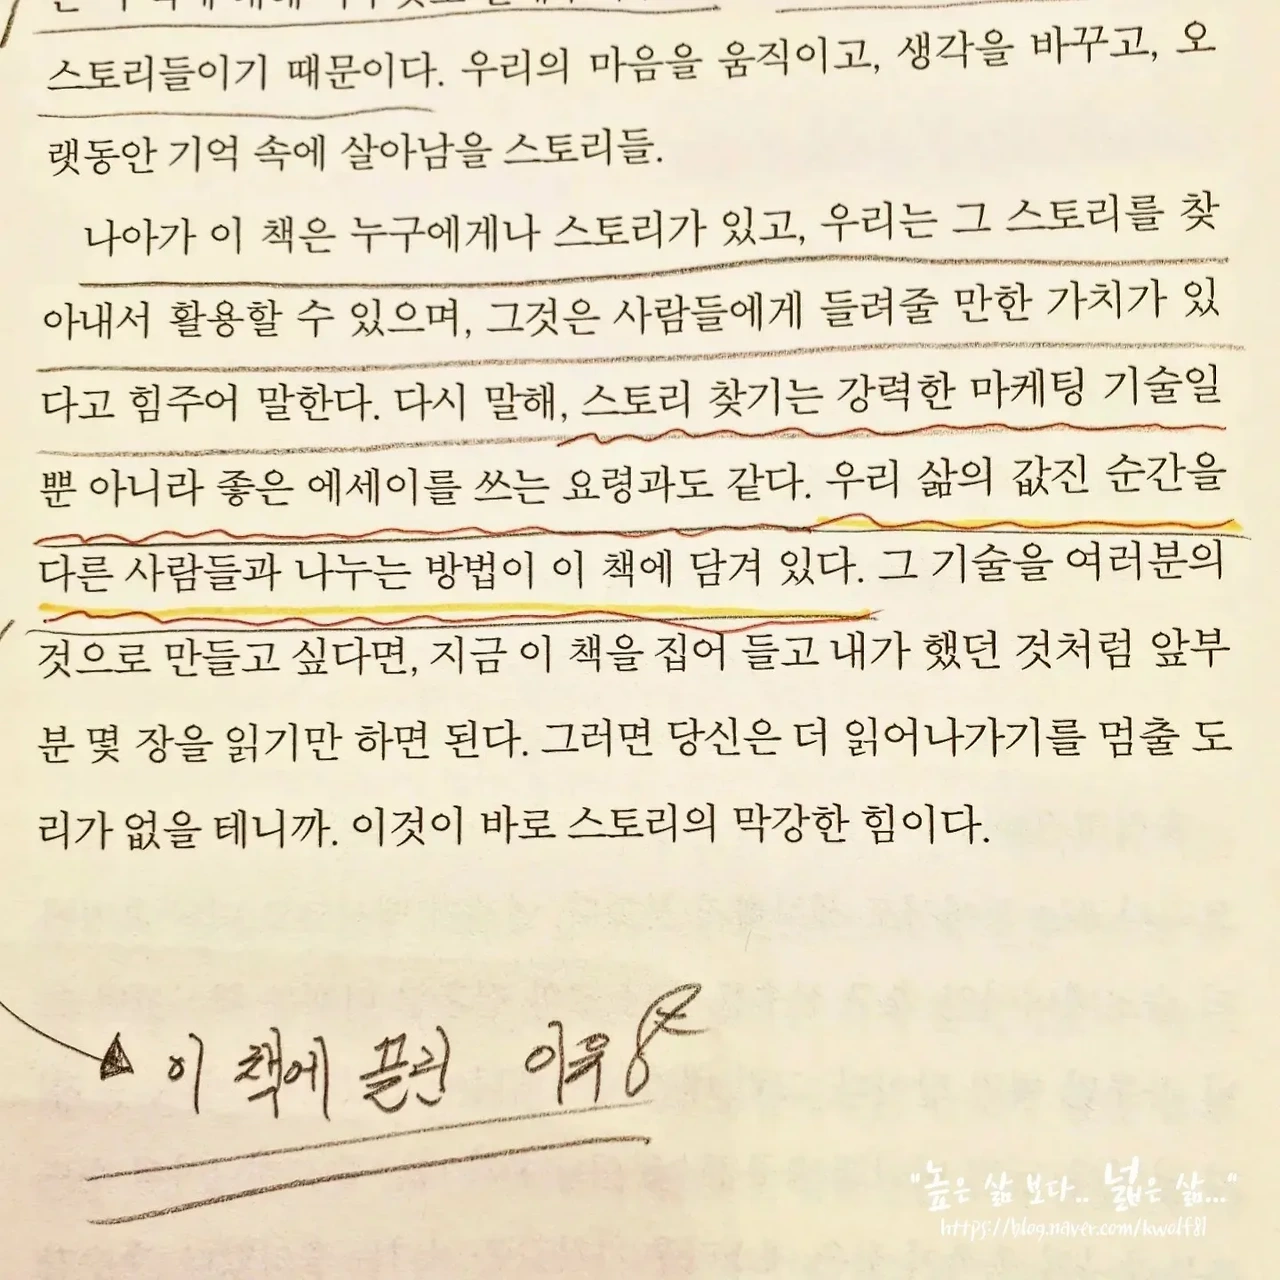 스토리들이기 때문이다. 우리의 마음을 움직이고, 생각을 바꾸고, 오
랫동안 기억 속에 살아남을 스토리들.
나아가 이 책은 누구에게나 스토리가 있고, 우리는 그 스토리를 찾
아내서 활용할 수 있으며, 그것은 사람들에게 들려줄 만한 가치가 있
다고 힘주어 말한다. 다시 말해, 스토리 찾기는 강력한 마케팅 기술일
뿐 아니라 좋은 에세이를 쓰는 요령과도 같다. 우리 삶의 값진 순간을
다른 사람들과 나누는 방법이 이 책에 담겨 있다. 그 기술을 여러분의
것으로 만들고 싶다면, 지금 이 책을 집어 들고 내가 했던 것처럼 앞부
분 몇 장을 읽기만 하면 된다. 그러면 당신은 더 읽어나가기를 멈출 도
리가 없을 테니까. 이것이 바로 스토리의 막강한 힘이다.
이 책에 끌린 이유
"높은 삶 보다.. 넓은 삶..."
https://blog.naver.com/kwolf81